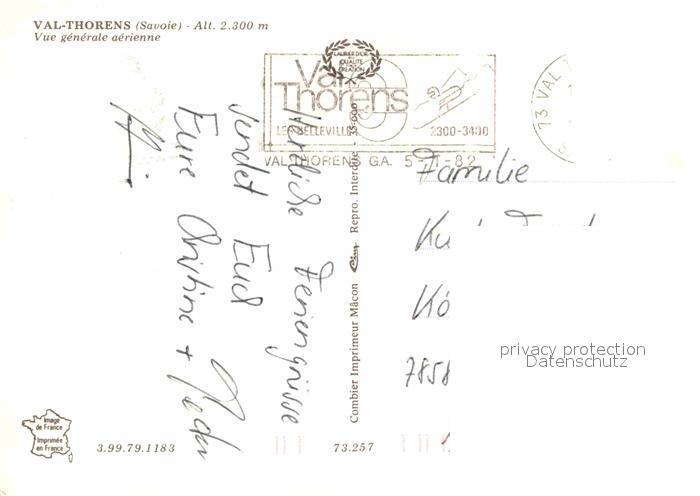 VAL-THORENS (Savoie) - Alt. 2.300 m
Vue générale aérienne
LAURIER D'OR
QUALITÉ
CRÉATION
Val
Thorens
LES BELLEVILLE
2300-3400
VAL THORENS G.A. 5-1-82
73 VAL
Herzliche Feriengrüsse
sendet Euch
Eure Christine +
Familie
Ku
Kö
7858
Combier Imprimeur Mâcon Cim Repro. Interdite - 35-000
privacy protection
Datenschutz
Image
de France
Imprimée
en France
3.99.79.1183
73.257